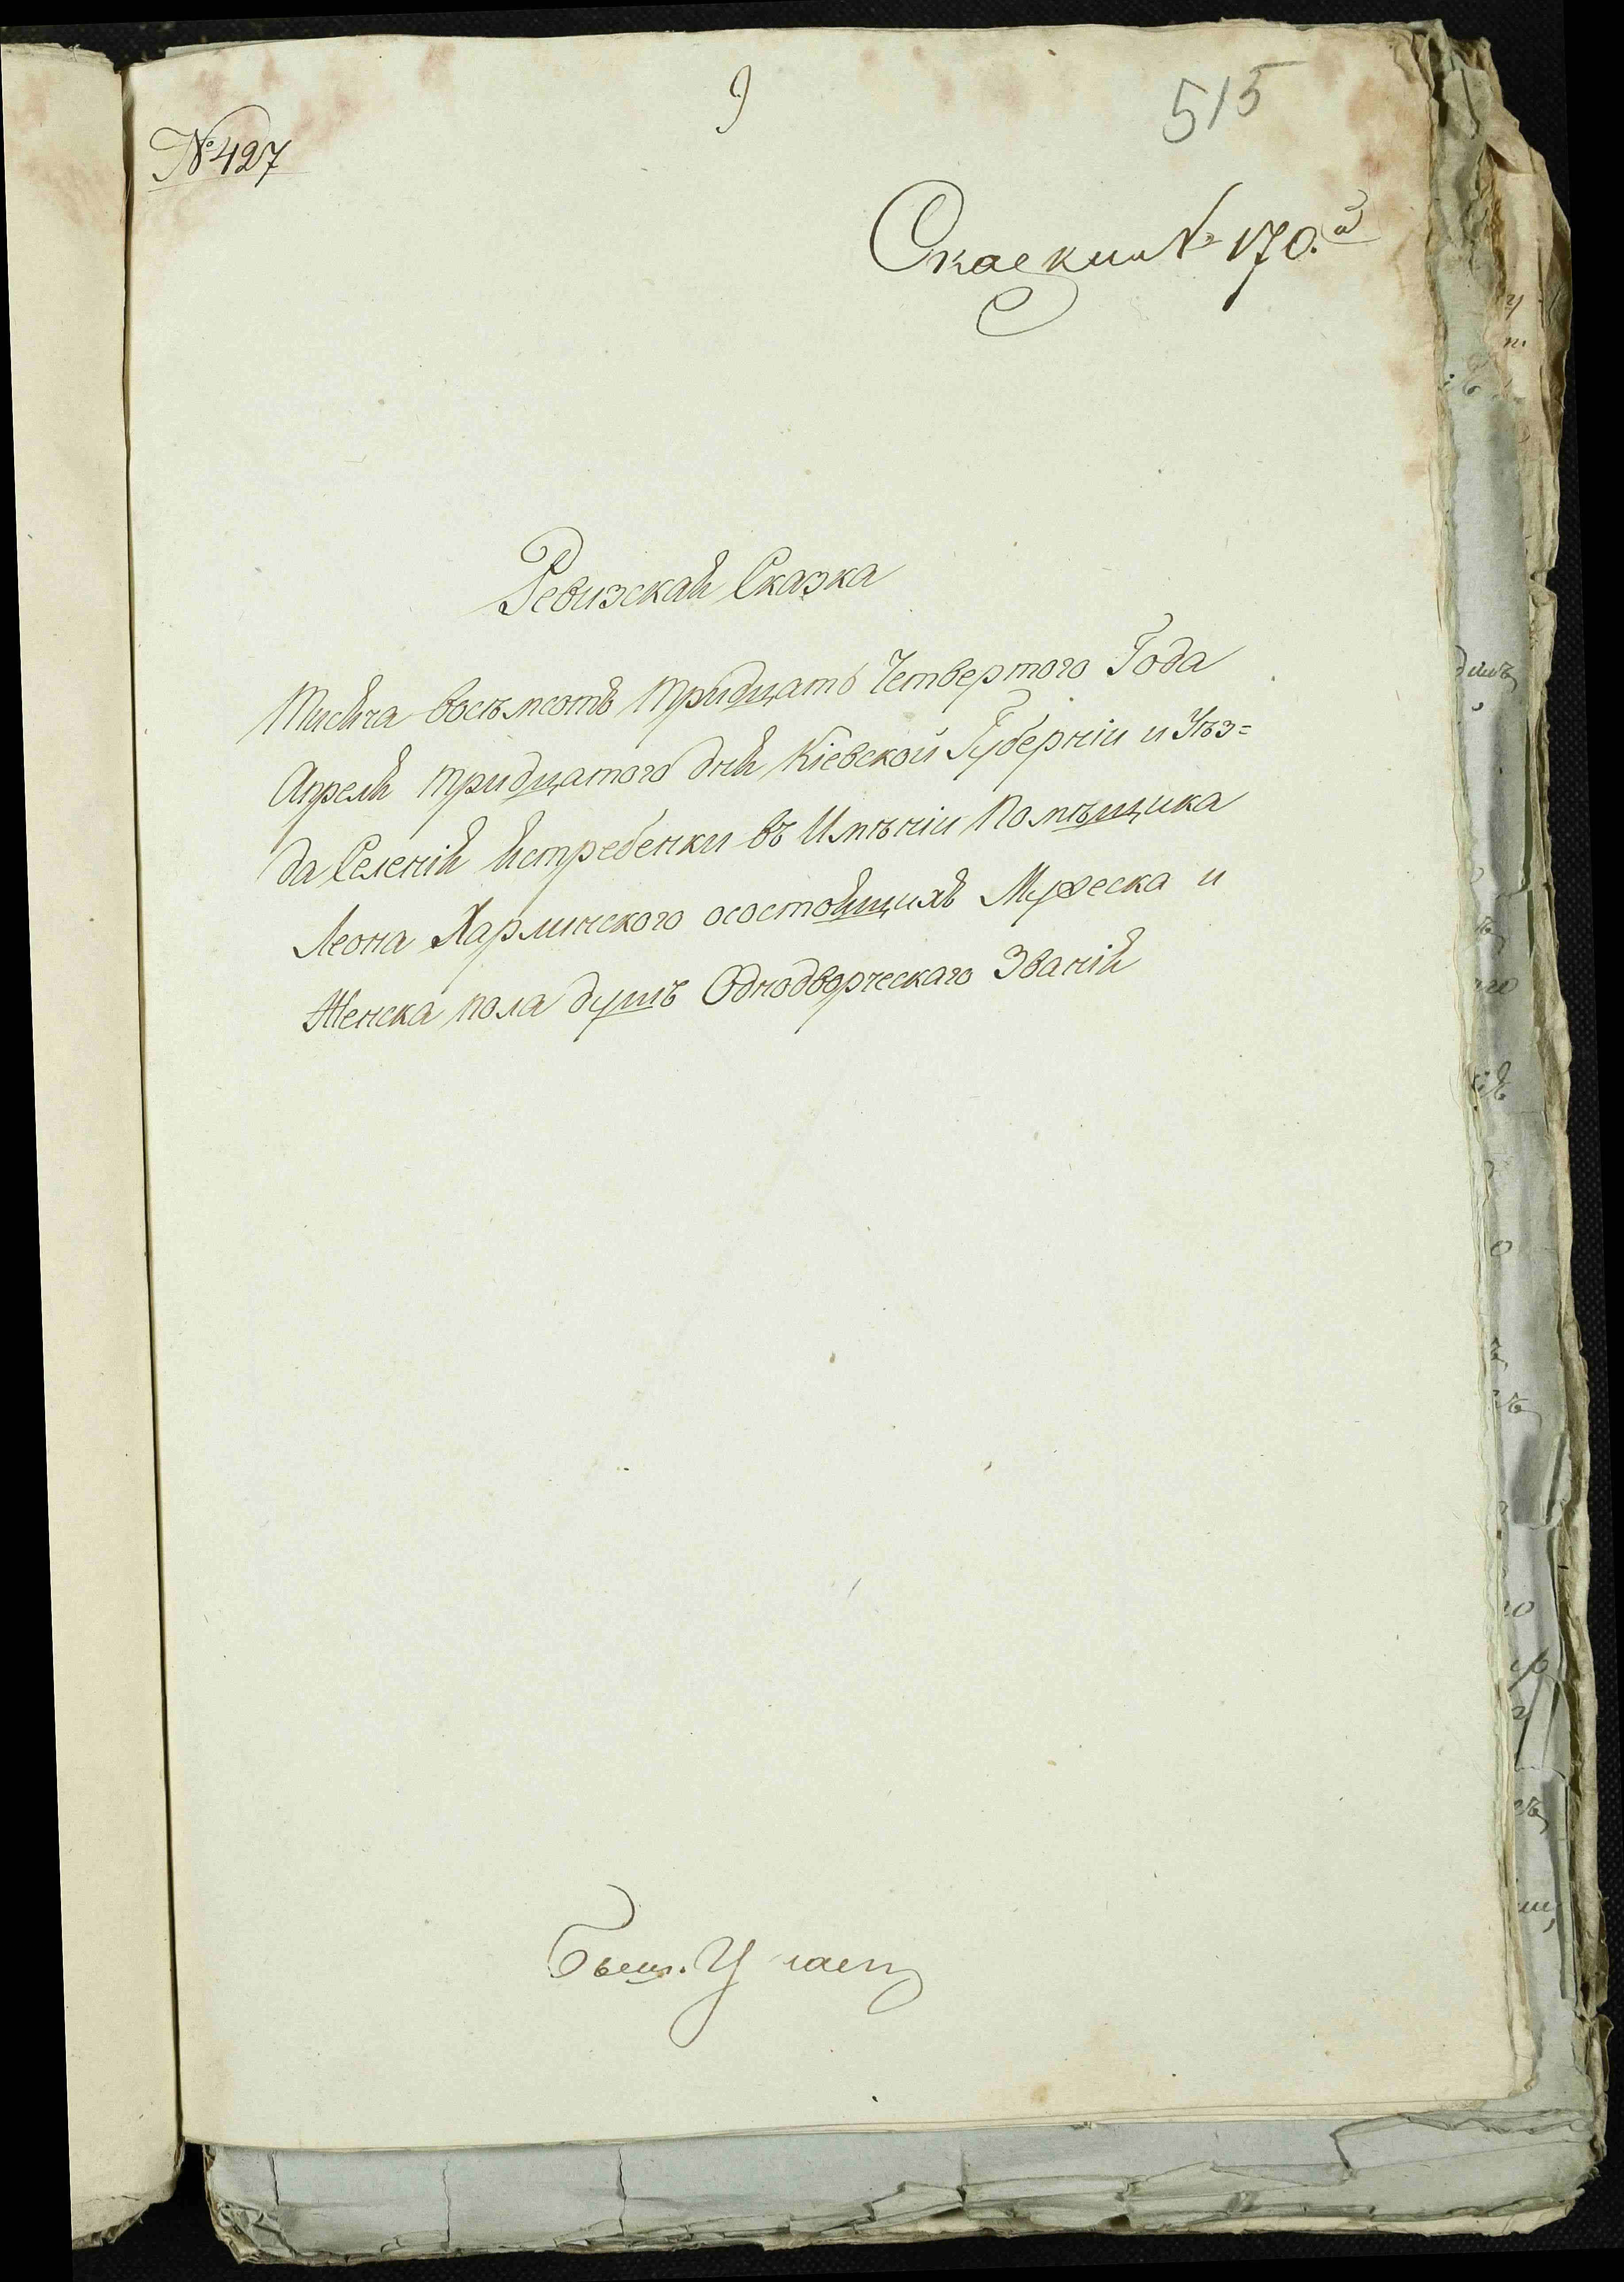 № 427
515
Сказкии № 170.й
Ревизская Сказка
Тисяча восемсотъ тридцать Четвертого Года
Апреля тридцатого дня Кіевской Губерніи и Уѣз=
да Селенія Ястребенки въ Имѣніи Помѣщика
Леона Харлинского осостоящихъ Мужеска и
Женска пола душъ Однодворческаго Званія